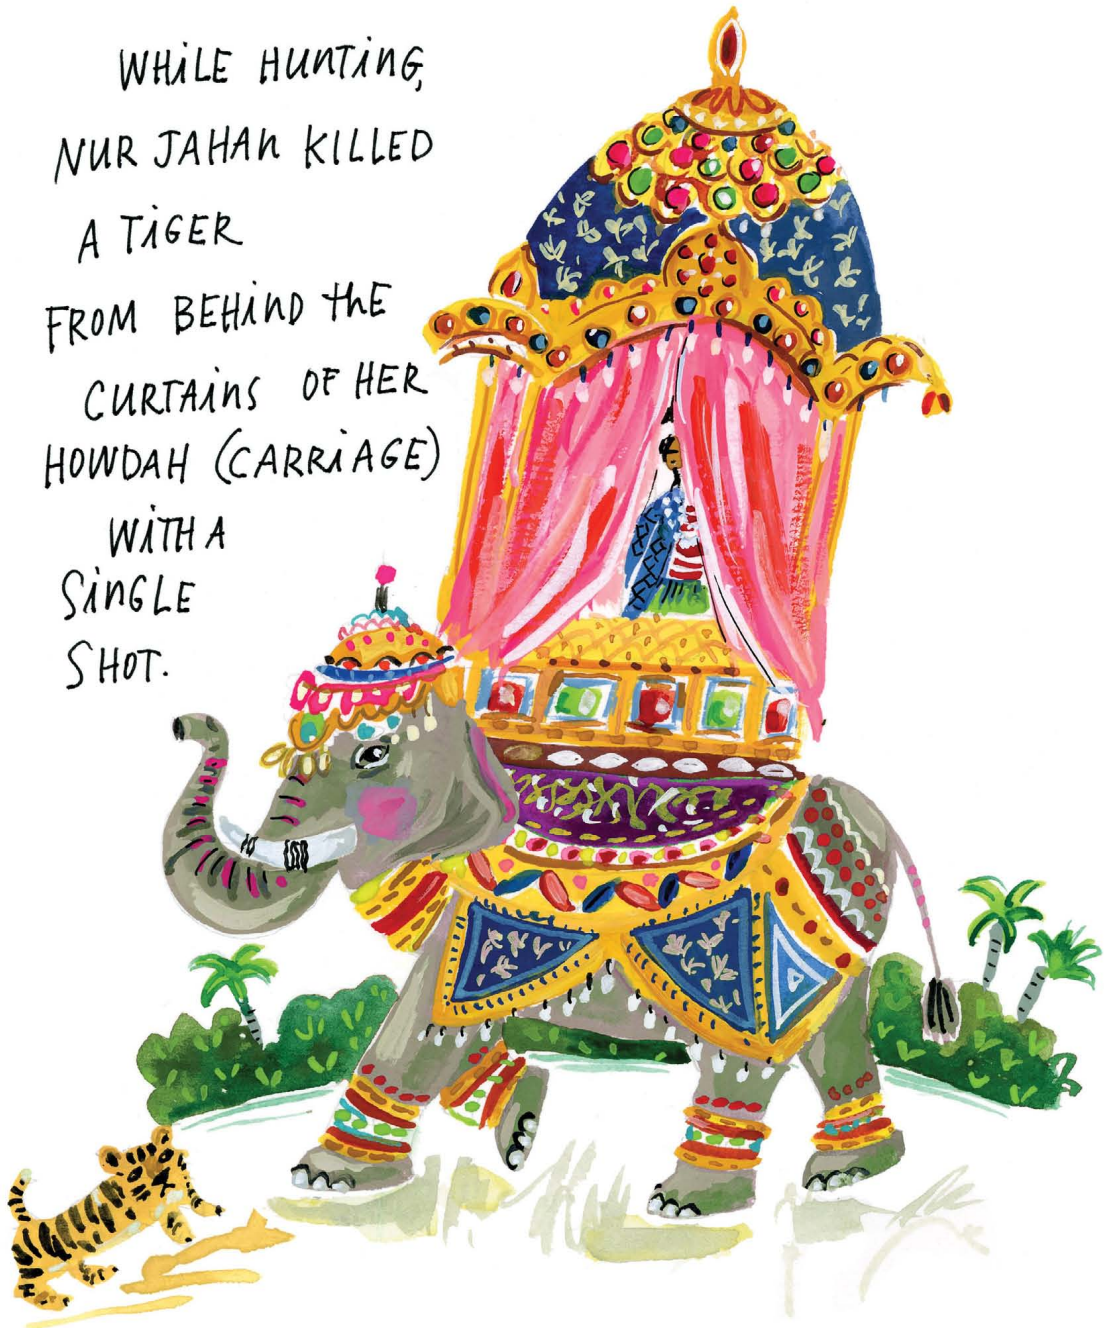 WHILE HUNTING,
NUR JAHAN KILLED
A TIGER
FROM BEHIND THE
CURTAINS OF HER
HOWDAH (CARRIAGE)
WITH A
SINGLE
SHOT.